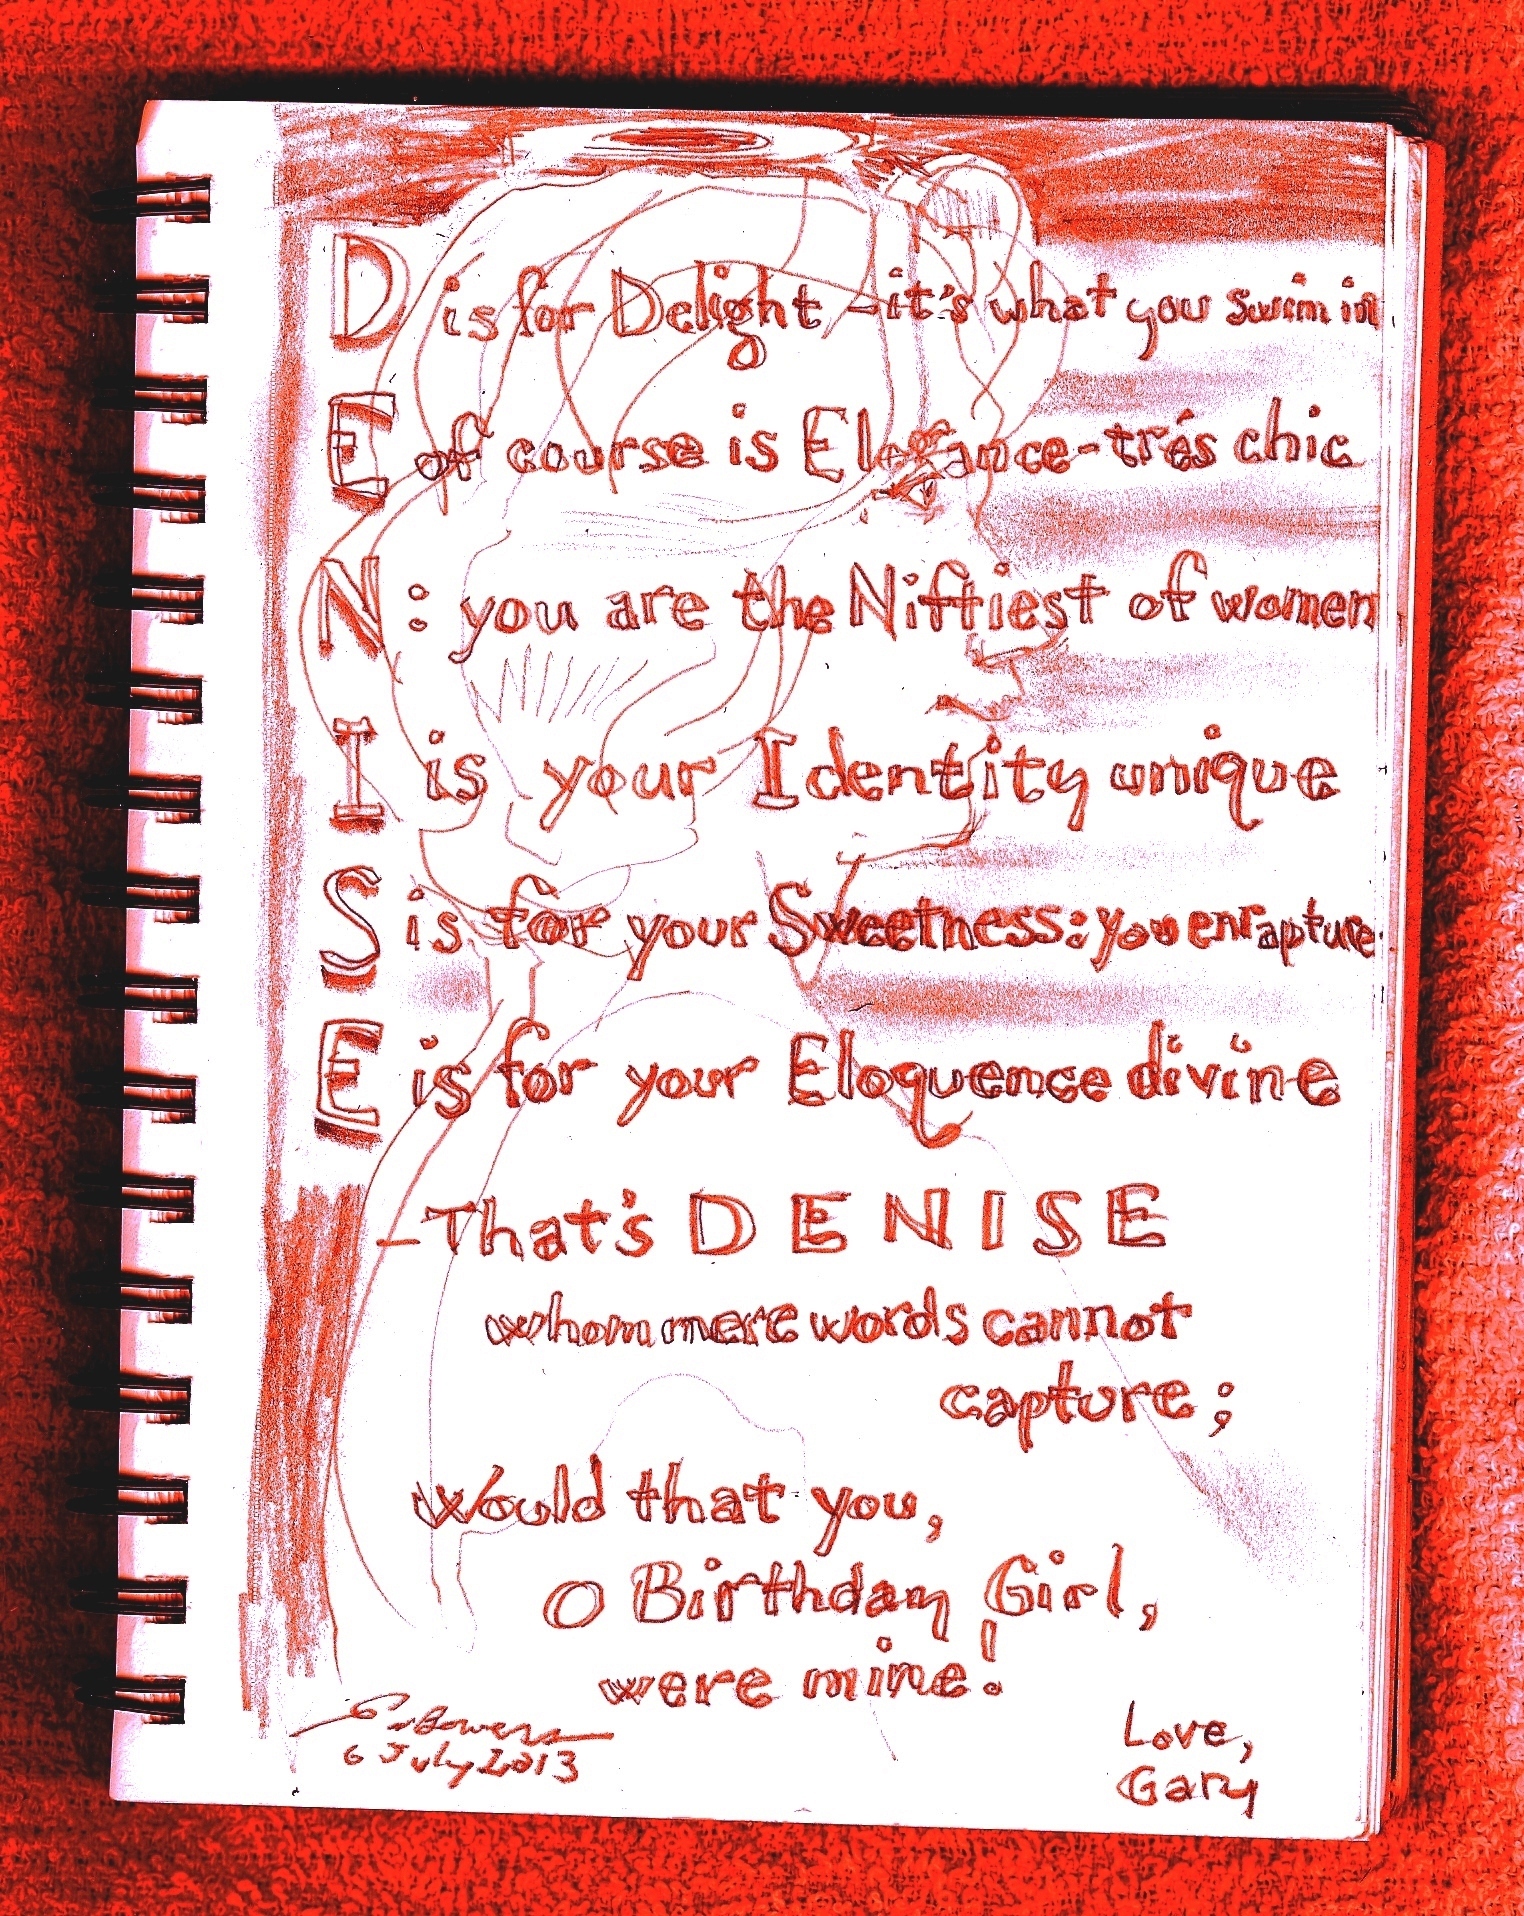 D is for Delight - it's what you swim in
E of course is Elegance - trés chic
N: you are the Niftiest of women
I is your Identity unique
S is for your Sweetness: you enrapture
E is for your Eloquence divine
- That's DENISE
whom mere words cannot
capture;
Would that you,
O Birthday Girl,
were mine!
Bowers
6 July 2013
Love,
Gary